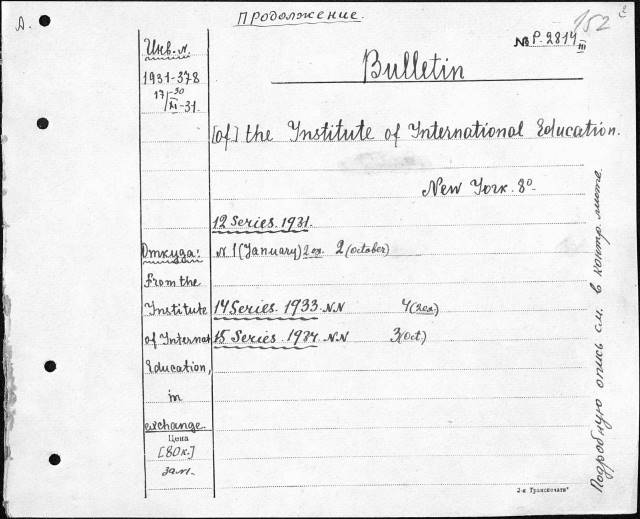 А.
Продолжение.
152
2
№ P-2814
III
Инв. N.
1931-378
17/30 XI-31.
Bulletin
[of] the Institute of International Education.
New York. 8°
12 Series. 1931.
Откуда:
N 1 (January) 2 эк. 2 (October)
From the
Institute
14 Series. 1933. NN 4 (2 эк.)
of Internat.
15 Series. 1934. NN 3 (Oct)
Education,
in
exchange.
Цена
[80к.]
Подробную опись см. в контр. листе.
2-я Транспечати"